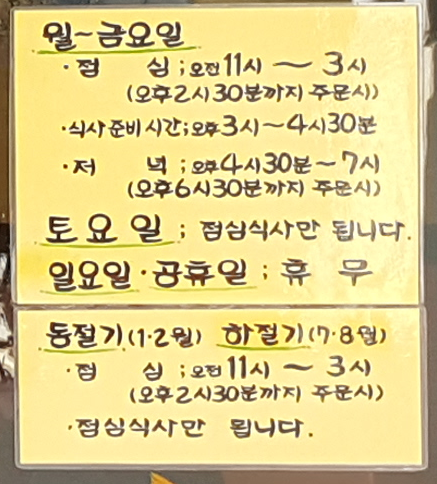 월~금요일
·점 심;오전11시 ~ 3시
(오후2시30분까지 주문시)
·식사준비시간;오후3시~4시30분
·저 녁;오후4시30분~7시
(오후6시30분까지 주문시)
토요일; 점심식사만 됩니다.
일요일·공휴일; 휴 무
동절기(1·2월) 하절기(7·8월)
·점 심;오전11시 ~ 3시
(오후2시30분까지 주문시)
·점심식사만 됩니다.